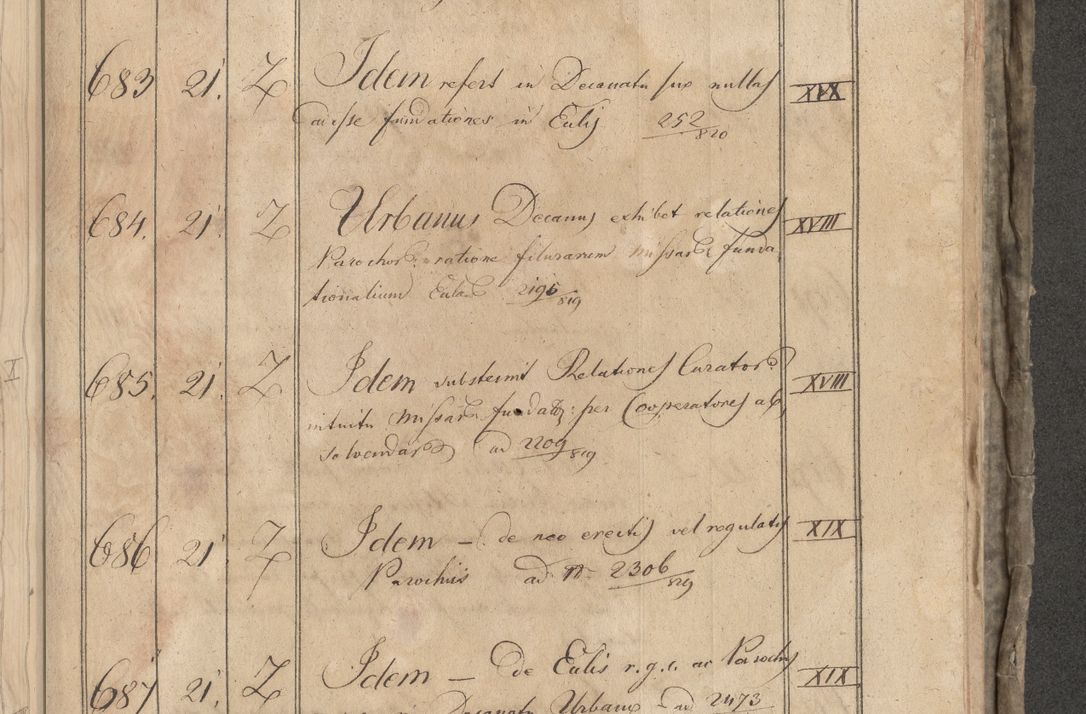 683 21. Z Idem refert in Decanatu suo nullas XIX
adesse fundationes in Eulis 252/820
684. 21. Z Urbanus Decanus exhibet relationes XVIII
Parochor: ratione filurarum missar: funda
tionalium 2195/819
685. 21. Z Idem substernit Relationes Curator: XVIII
intuitu missar: fundat: per Cooperatores ab
solvendar: ad 2209/819
686 21. Z Idem – de neo erectis vel regulatis XIX
Parochiis ad N 2306/819
687 21. Z Idem – de Eulis r.g.c. ac Parochis XIX
Decanatu Urbano ad 2473
I